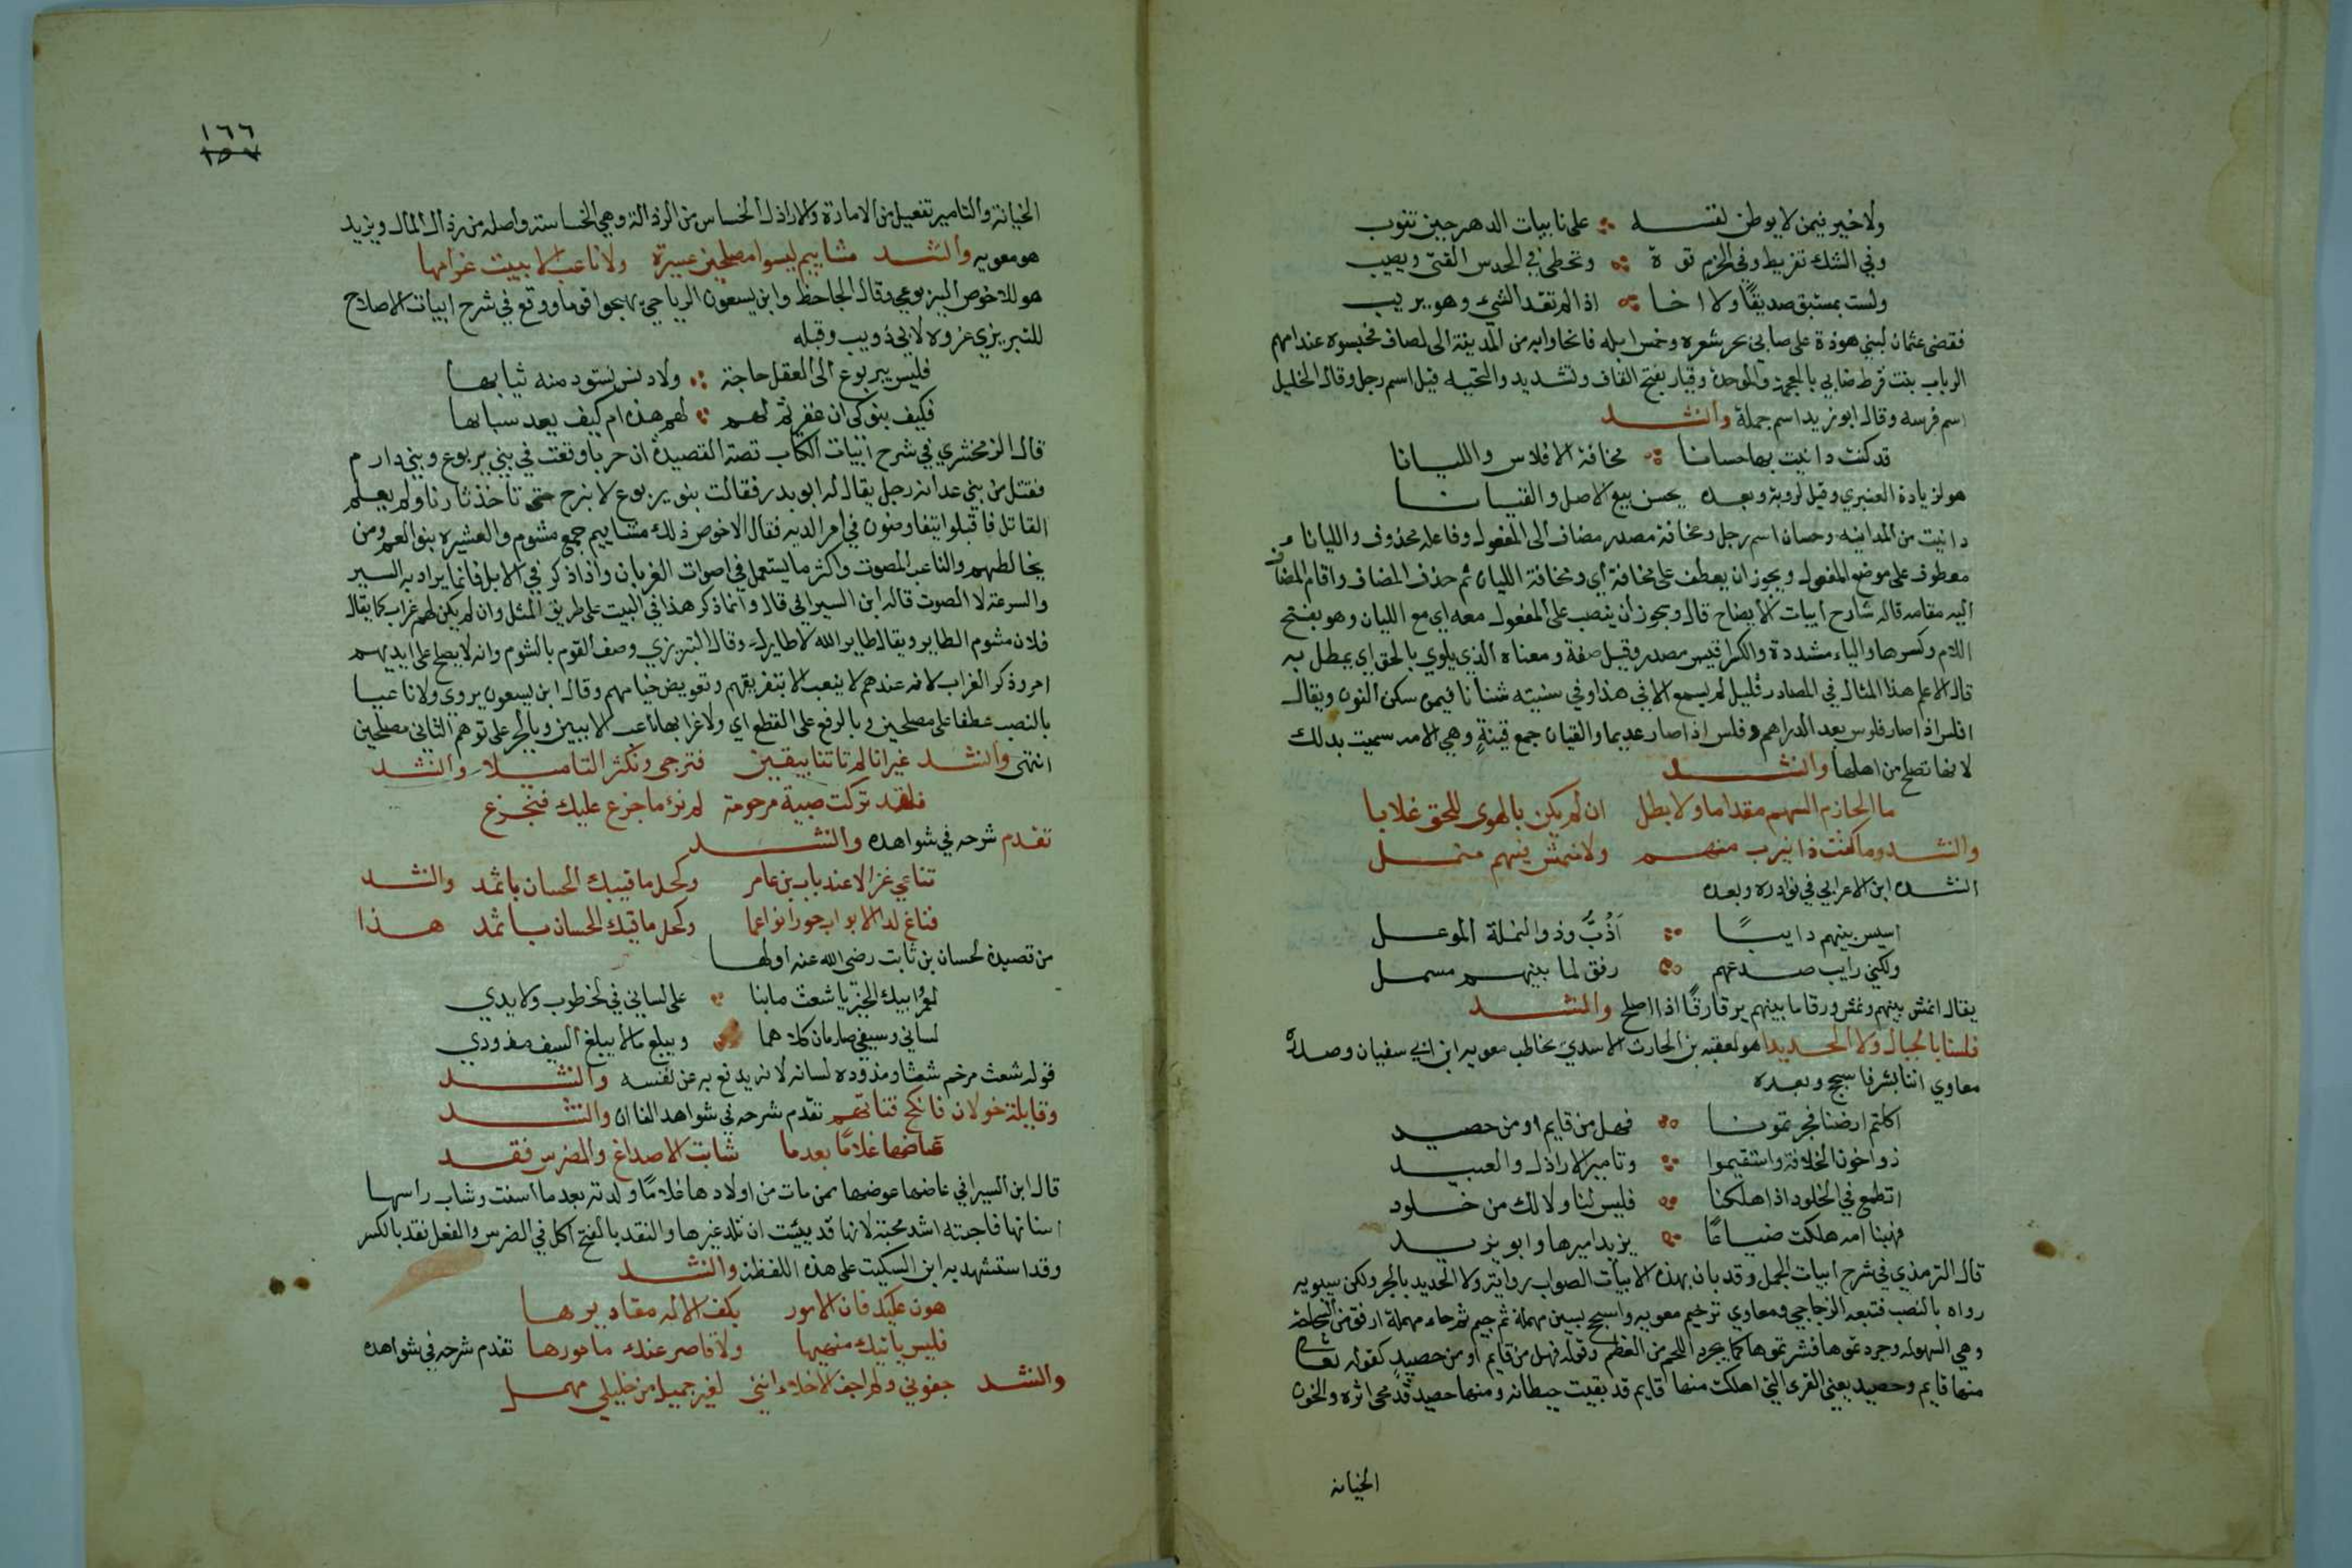 ولا خير فيمن لا يوطن نفسه على نايبات الدهر حين تنوب
وفي الشك تفريط وفي الحزم قوة وتخطئ في الحدس الفتى ويصيب
ولست بمستبق صديقا ولا اخا اذا لم تعد الشيء وهو يريب
فقضى عثمان لبني هوذة على ضابي بحر شعره وخمس ابله فانحازوا به من المدينة الى لصاف فحبسوه عند امهم
الرباب بنت قرط ضابي بالمعجمة والموحدة وقيار بفتح القاف وتشديد والتحتيه قيل اسم رجل وقال الخليل
اسم فرسه وقال ابو زيد اسم جمله وانشد
قد كنت داينت بها حسانا مخافة الافلاس والليانا
هو لزيادة العنبري وقيل لروبة وبعده يحسن بيع الاصل والقيانا
داينت من المداينه وحسان اسم رجل ومخافة مصدر مضاف الى المفعول وفاعله محذوف والليانا
معطوف على موضع المفعول ويجوز ان يعطف على مخافة أي ومخافة الليان ثم حذف المضاف واقام المضاف
اليه مقامه قاله شارح ابيات الايضاح قال ويجوز أن ينصب على المفعول معه اي مع الليان وهو بفتح
اللام وكسرها والياء مشددة والكسر اقيس مصدر وقيل صفة ومعناه الذي يلوي بالحق اي يمطل به
قال الاعلم هذا المثال في المصادر قليل لم يسمع الا في هذا وفي شنيته شنانا فيمن سكن النون ويقال
افلس اذا صار فلوس بعد الدراهم وفلس اذا صار عديما والقيان جمع قينةٍ وهي الامه سميت بدلك
لانها تصلح من اهلها وانشد
ما الحازم الشهم مقداما ولا بطل ان لم يكن بالهوى للحق غلابا
وانشد وما كنت ذا نيرب منهم ولا منمش فيهم منمل
انشده ابن الاعرابي في نوادره وبعده
اسيس بينهم دايبًا أدُبُّ وذو النملة الموعل
ولكني رايب صدعهم رفق لما بينهم مسمل
يقال انمش بينهم ونمش ورقا ما بينهم يرقا رقًا اذا اصلح وانشد
فلسنا بالجبال ولا الحديدا هو لعقبه بن الحارث الاسدي يخاطب معويه ابن ابي سفيان وصدره
معاوي اننا بشر فاسجح وبعده
اكلتم ارضنا فجردتمونا فهل من قايم او من حصيد
ذوا خون الخلافة واستقيموا وتامير الاراذل والعبيد
اتطمع في الخلود اذا هلكنا فليس لنا ولا لك من خلود
فهبنا امه هلكت ضياعًا يزيد اميرها وابو يزيد
قال الترمذي في شرح ابيات الجمل وقد بان بهذه الابيات الصواب روايته ولا الحديد بالجر ولكن سيبويه
رواه بالنصب فتبعه الزجاجي ومعاوي ترخيم معويه واسجح بسين مهملة ثم جيم ثم حاء مهملة ارفق من السجاحة
وهي السهولة وجردتموها قشرتموها كما يجرد اللحم من العظم وقوله فهل من قايم او من حصيد كقوله تعالى
منها قايم وحصيد يعني القرى التي اهلكت منها قايم قد بقيت حيطانه ومنها حصيد قد محى اثره والخون
الخيانه
١٦٦
١٥٧
الخيانة والتامير تفعيل من الامارة والاراذل الخساس من الرذالة وهي الخساسة واصله من رذال المال ويزيد
هو معويه وانشد مشاييم ليسوا مصلحين عشيرة ولا ناعب الا ببين غرابها
هو للاخوص اليربوعي وقال الجاحظ وابن يسعون الرياحي يهجوا قوما ووقع في شرح ابيات الاصلاح
للتبريزي عزوه لابي ذويب وقبله
فليس بيربوع الى العقل حاجة ولا دنس تسود منه ثيابها
فكيف بنوكي ان غفرتم لهم لهم هذه ام كيف بعد سبابها
قال الزمخشري في شرح ابيات الكتاب قصة القصيدة أن حربا وقعت في بني يربوع وبني دارم
فقتل من بني غدانة رجل يقال له ابو بدر فقالت بنو يربوع لا نبرح حتى تاخذ ثارنا ولم يعلم
القاتل فاقبلوا يتفاوضون في امر الديه فقال الاخوص ذلك مشاييم جمع مشوم والعشيره بنو العم ومن
يخالطهم والناعب المصوت واكثر ما يستعمل في اصوات الغربان واذا ذكر في الابل فانما يراد به السير
والسرعة لا الصوت قاله ابن السيرافي قال وانما ذكر هذا في البيت على طريق المثل وان لم يكن لهم غراب كما يقال
فلان مشوم الطاير ويقال طاير الله لا طايرك وقال التبريزي وصف القوم بالشوم وانه لا يصلح على ايديهم
امر وذكر الغراب لانه عندهم لا ينعب الا بتفريقهم وتقويض خيامهم وقال ابن يسعون يروى ولا ناعبا
بالنصب عطفا على مصلحين وبالرفع على القطع اي ولا غرابها ناعب الا ببين وبالجر على توهم الثاني مصلحين
انتهى وانشد غير انا لم تاتنا بيقين فنرجي ونكثر التاميلا وانشد
فلقد تركت صبية مرحومة لم تدر ما جزع عليك فتجزع
تقدم شرحه في شواهده وانشد
تناغي غزالا عند باب بن عامر وكحل ماقيك الحسان باثمد وانشد
فناغ لدا الابواب حورا نواعما وكحل ماقيك الحسان باثمد هذا
من قصيدة لحسان بن ثابت رضي الله عنه اولها
لعمر ابيك الخير يا شعث ما نبا على لساني في الخطوب ولا يدي
لساني وسيفي صارمان كلاهما ويبلغ ما لا يبلغ السيف مذودي
قوله شعث مرخم شعثا ومذوده لسانه لانه يدفع به عن نفسه وانشد
وقايلة خولان فانكح فتاتهم تقدم شرحه في شواهد الفا ان وانشد
عاضها غلامًا بعدما شابت الاصداغ والضرس نقد
قال ابن السيرافي عاضها عوضها ممن مات من اولادها غلامًا ولدته بعد ما اسنت وشاب راسها
اسنانها فاحبته اشد محبة لانها قد يئست ان تلد غيرها والنقد بالفتح اكل في الضرس والفعل نقد بالكسر
وقد استشهد به ابن السكيت على هذه اللفظة وانشد
هون عليك فان الامور بكف الاله مقاديرها
فليس ياتيك منهيها ولا قاصر عنك مامورها تقدم شرحه في شواهده
وانشد جفوني ولم اجف الاخلاء انني لغير جميل من خليلي مهمل